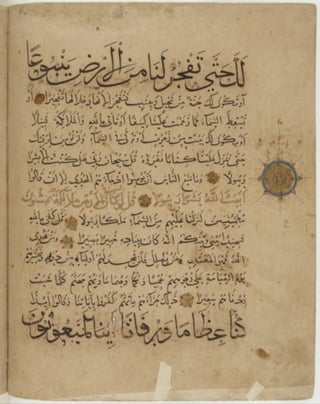 لك حتى تفجر لنا من الأرض ينبوعا
أو تكون لك جنة من نخيل وعنب فتفجر الأنهار خلالها تفجيرا أو
تسقط السماء كما زعمت علينا كسفا أو تأتي بالله والملائكة قبيلا
أو يكون لك بيت من زخرف أو ترقى في السماء ولن نؤمن لرقيك
حتى تنزل علينا كتابا نقرؤه قل سبحان ربي هل كنت إلا بشرا
رسولا وما منع الناس أن يؤمنوا إذ جاءهم الهدى إلا أن قالوا
أبعث الله بشرا رسولا قل لو كان في الأرض ملائكة يمشون
مطمئنين لنزلنا عليهم من السماء ملكا رسولا قل كفى بالله
شهيدا بيني وبينكم إنه كان بعباده خبيرا بصيرا ومن يهد
الله فهو المهتد ومن يضلل فلن تجد لهم أولياء من دونه ونحشرهم
يوم القيامة على وجوههم عميا وبكما وصما مأواهم جهنم كلما خبت
زدناهم سعيرا ذلك جزاؤهم بأنهم كفروا بآياتنا وقالوا أئذا
كنا عظاما ورفاتا أئنا لمبعوثون